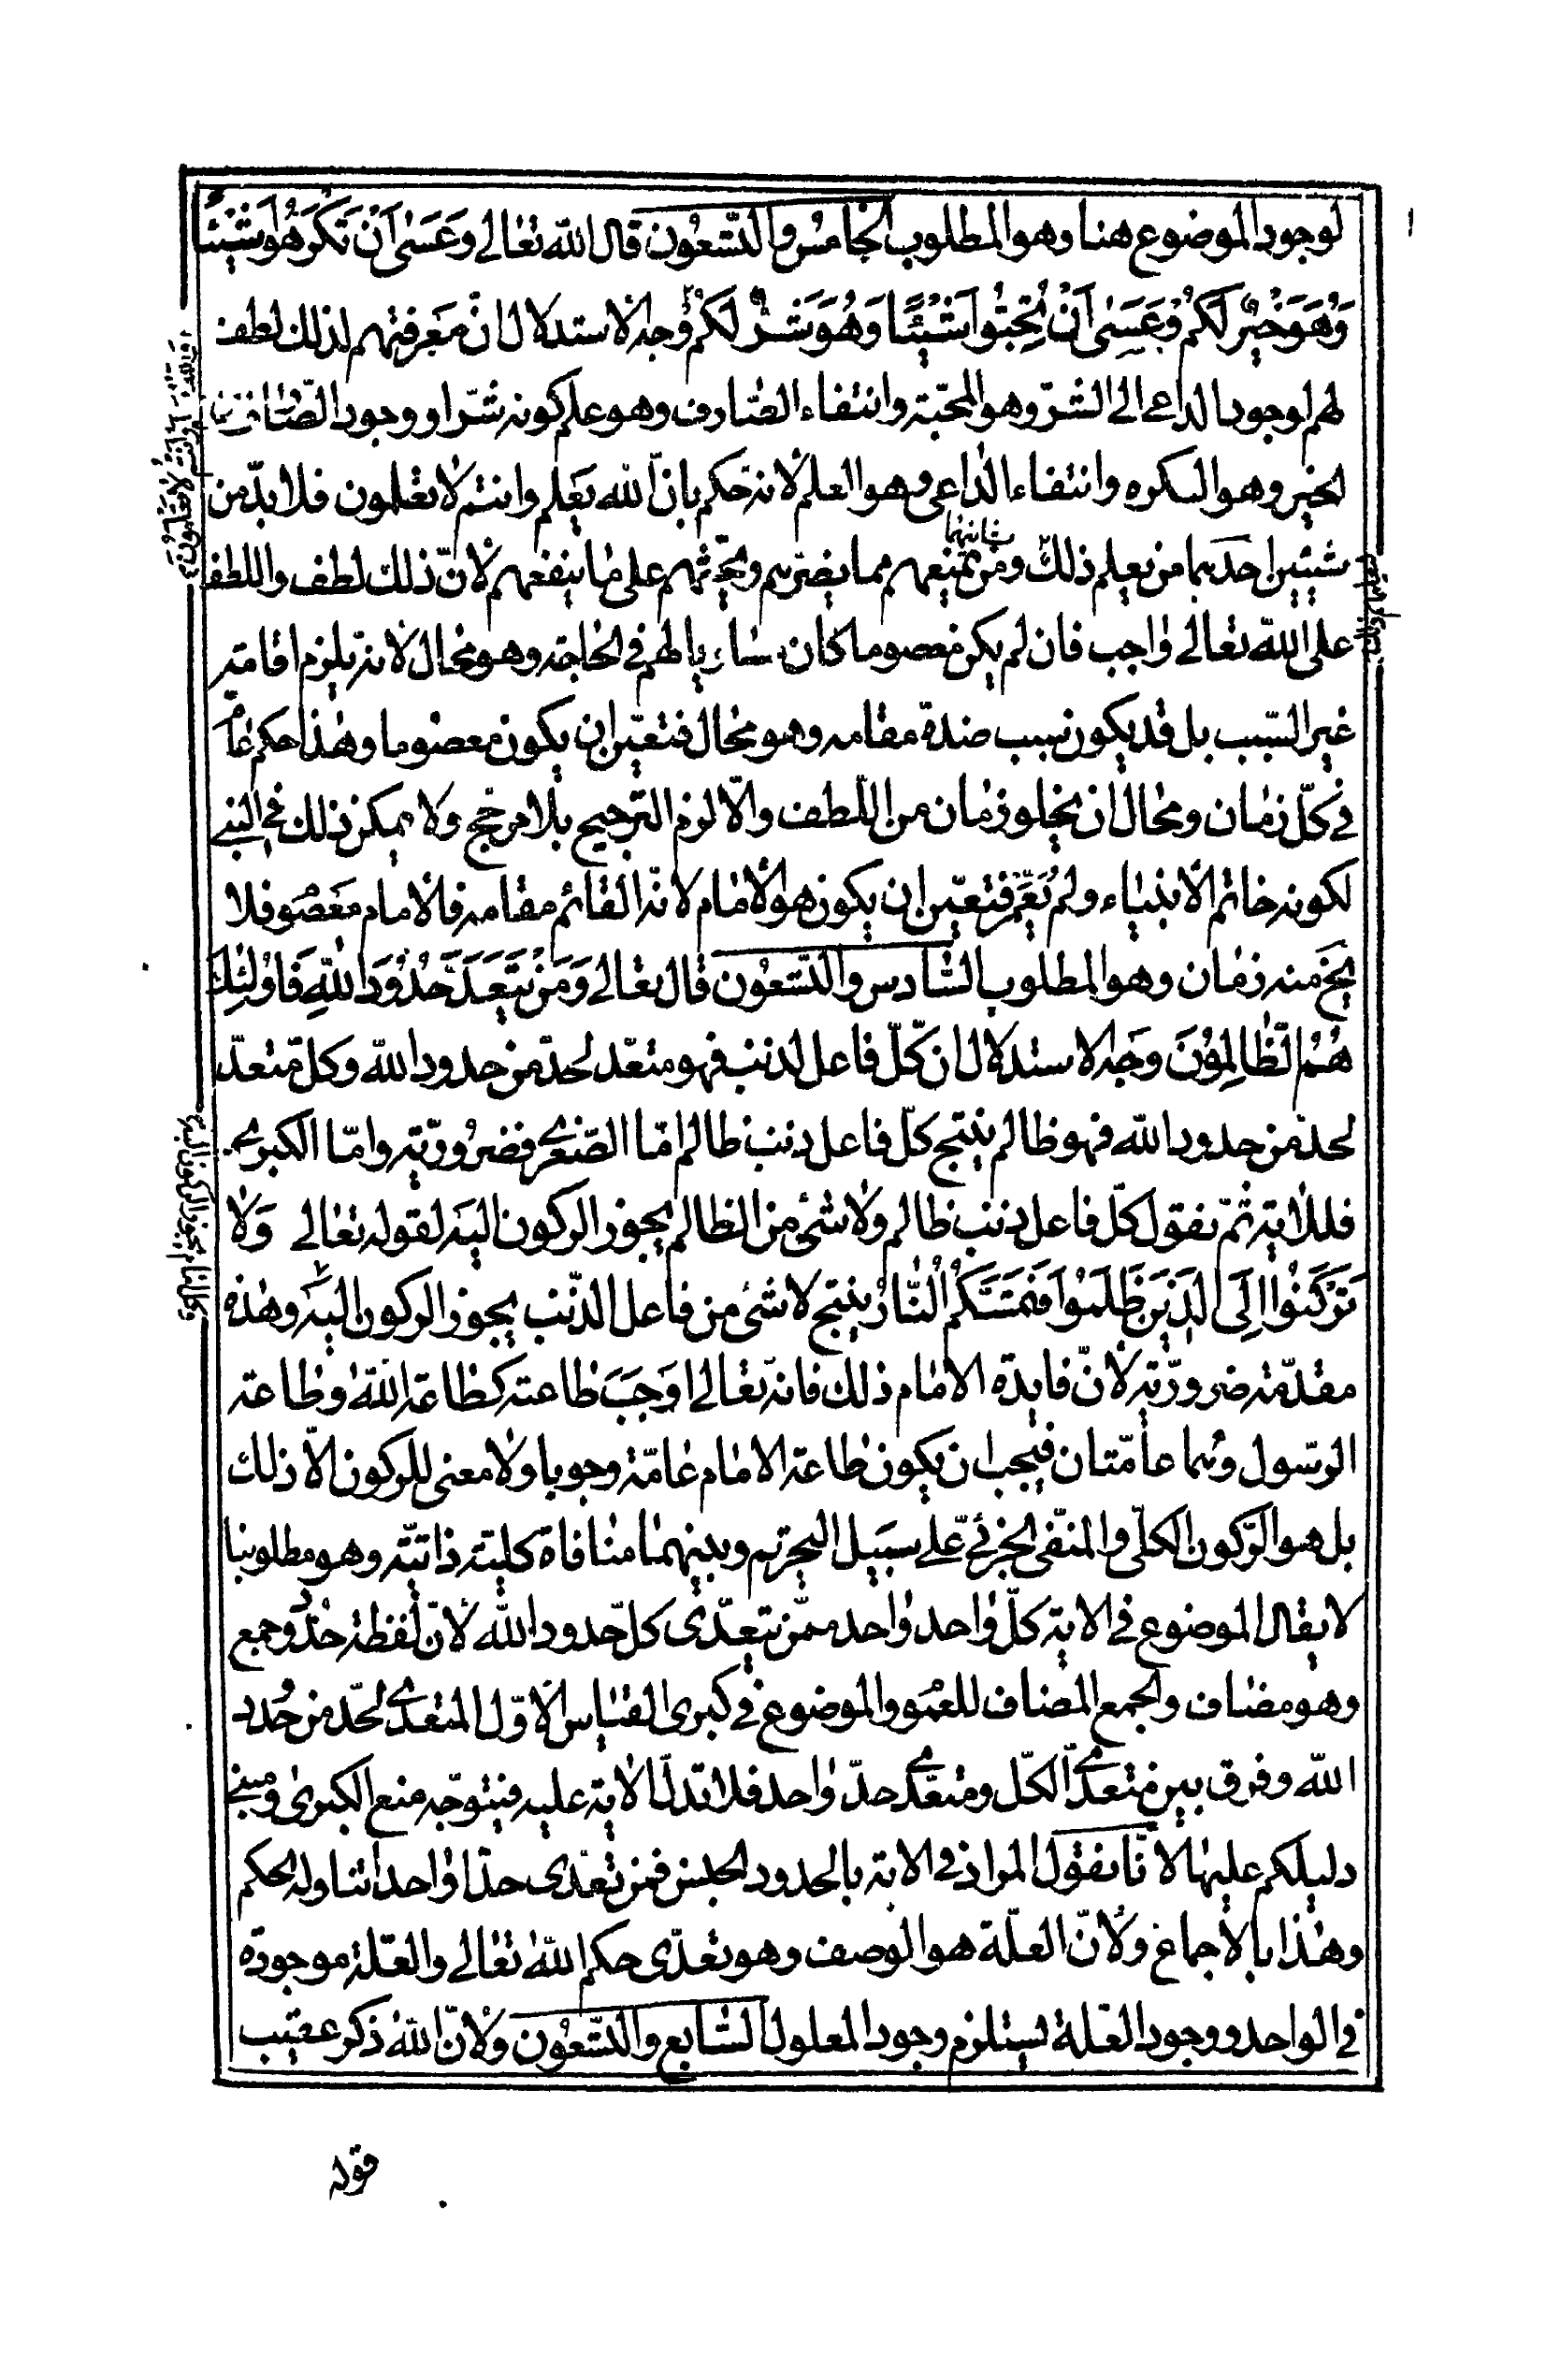 لوجود الموضوع هنا وهو المطلوب الخامس والتسعون قال الله تعالى وَعَسٰى اَنْ تَكْرَهُوا شَيْئًا
وَهُوَ خَيْرٌ لَكُمْ وَعَسٰى اَنْ تُحِبُّوا شَيْئًا وَهُوَ شَرٌّ لَكُمْ وجه الاستدلال ان معرفتهم لذلك لطف
لهم لوجود الداعى الى الشر وهو المحبة وانتفاء الصارف وهو علم كونه شرا ووجود الصارف عن
الخير وهو الكره وانتفاء الداعى وهو العلم لانه حكم بان الله يعلم وانتم لا تعلمون فلا بد من
شيئين احدهما من يعلم ذلك وثانيهما من يمنعهم مما يضرهم ويحثهم على ما ينفعهم لان ذلك لطف واللطف
على الله تعالى واجب فان لم يكن معصوما كان مساويا لهم فى الحاجة وهو محال لانه يلزم اقامة
غير السبب بل قد يكون سبب ضده مقامه وهو محال فتعين ان يكون معصوما وهذا حكم عام
فى كل زمان ومحال ان يخلو زمان من اللطف والا لزم الترجيح بلا مرجح ولا يمكن ذلك فى النبى
لكونه خاتم الانبياء ولم يعمر فتعين ان يكون هو الامام لانه القائم مقامه فالامام معصوم فلا
يخ منه زمان وهو المطلوب السادس والتسعون قال تعالى وَمَنْ يَتَعَدَّ حُدُودَ اللهِ فَاُولٰئِكَ
هُمُ الظَّالِمُونَ وجه الاستدلال ان كل فاعل لذنب فهو متعد لحد من حدود الله وكل متعد
لحد من حدود الله فهو ظالم ينتج كل فاعل ذنب ظالم اما الصغرى فضرورية واما الكبرى
فللاية ثم نقول كل فاعل ذنب ظالم ولا شئ من الظالم يجوز الركون اليه لقوله تعالى وَلَا
تَرْكَنُوا اِلَى الَّذِينَ ظَلَمُوا فَتَمَسَّكُمُ النَّارُ ينتج لا شئ من فاعل الذنب يجوز الركون اليه وهذه
مقدمة ضرورية لان فايدة الامام ذلك فانه تعالى اوجب طاعته كطاعة الله وطاعة
الرسول وهما عامتان فيجب ان يكون طاعة الامام عامة وجوبا ولا معنى للركون الا ذلك
بل هو الركون الكلى والمنفى الجزئى على سبيل التحريم وبينهما منافاة كلية ذاتية وهو مطلوبنا
لا يقال الموضوع فى الاية كل واحد واحد ممن يتعدى كل حدود الله لان لفظة حدود جمع
وهو مضاف والجمع المضاف للعموم والموضوع فى كبرى القياس الاول المتعدى لحد من حدود
الله وفرق بين متعدى الكل ومتعدى حد واحد فلا تدل الاية عليه فيتوجه منع الكبرى ومنع
دليلكم عليها لانا نقول المراد فى الاية بالحدود الجنس فمن تعدى حدا واحدا تناوله الحكم
وهذا بالاجماع ولان العلة هو الوصف وهو تعدى حكم الله تعالى والعلة موجودة
فى الواحد ووجود العلة يستلزم وجود المعلول السابع والتسعون ولان الله ذكر عقيب
قوله